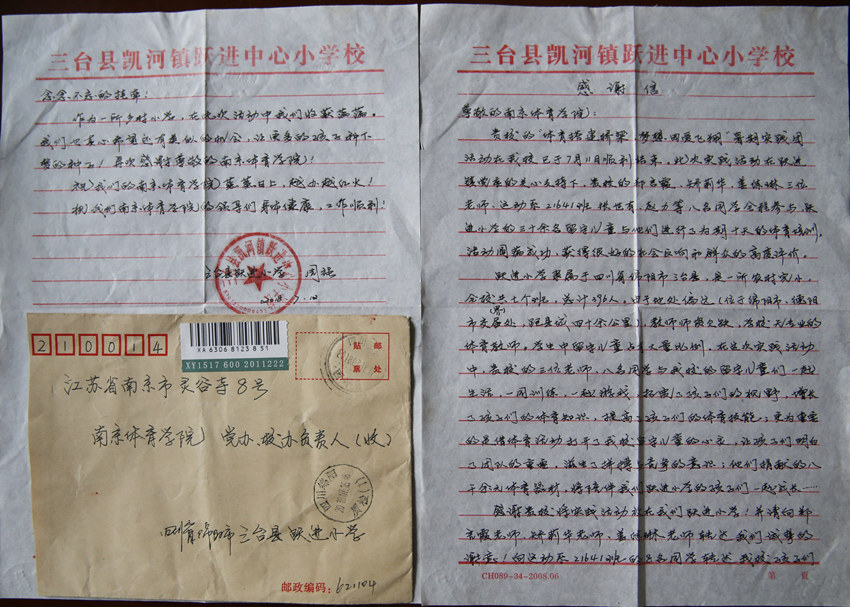 三台县凯河镇跃进中心小学校
感谢信
尊敬的南京体育学院：
贵校的“体育搭建桥梁，梦想因爱飞翔”暑期实践团
活动在我校已于7月11日顺利结束，此次实践活动在跃进
老师、运动系21641班
进小学的三十余名留守儿童与他们进行了为期十天的体育培训，
活动圆满成功，获得很好的社会反响和群众的高度评价。
跃进小学隶属于四川省绵阳市三台县，是一所农村完小，
全校共七个班，总计396人，由于地处偏远（位于绵阳市、德阳
市交届处，距县城四十余公里），教师师资欠缺，学校无专业的
(界)
体育教师，学生中留守儿童占了大量比例。在这次实践活动
中，贵校的三位老师，八名同学与我校的留守儿童们一起
生活，一同训练，一起游戏，拓宽了孩子们的视野，增长
了孩子们的体育知识，提高了孩子们的体育技能；更为重要
的是借体育活动打开了我校留守儿童的心衣，让孩子们明白
了团队的重要，滋生了拼搏与竞争的意识；他们捐献的八
千余元体育器材，将陪伴我们跃进小学的孩子们一起成长……
感谢贵校将实践活动放在我们跃进小学！并请向郑
谢意！向运动系21641班的8名同学转达我校孩子们
CH089-34-2008.06
第 页
三台县凯河镇跃进中心小学校
念念不忘的挂牵！
作为一所乡村小学，在此次活动中我们收获满满。
我们也真心希望还有类似的机会，让更多的孩子种下
梦的种子！再次感谢尊敬的南京体育学院！
祝我们的南京体育学院蒸蒸日上，越办越红火！
祝我们南京体育学院的领导们身体健康，工作顺利！
三台县跃进小学
210014
XA 6306 8123 8 51
XY1517 600 2011222
贴邮
票处
江苏省南京市灵谷寺8号
南京体育学院 党办、校办负责人（收）
四川省绵阳市三台县跃进小学
邮政编码：621104